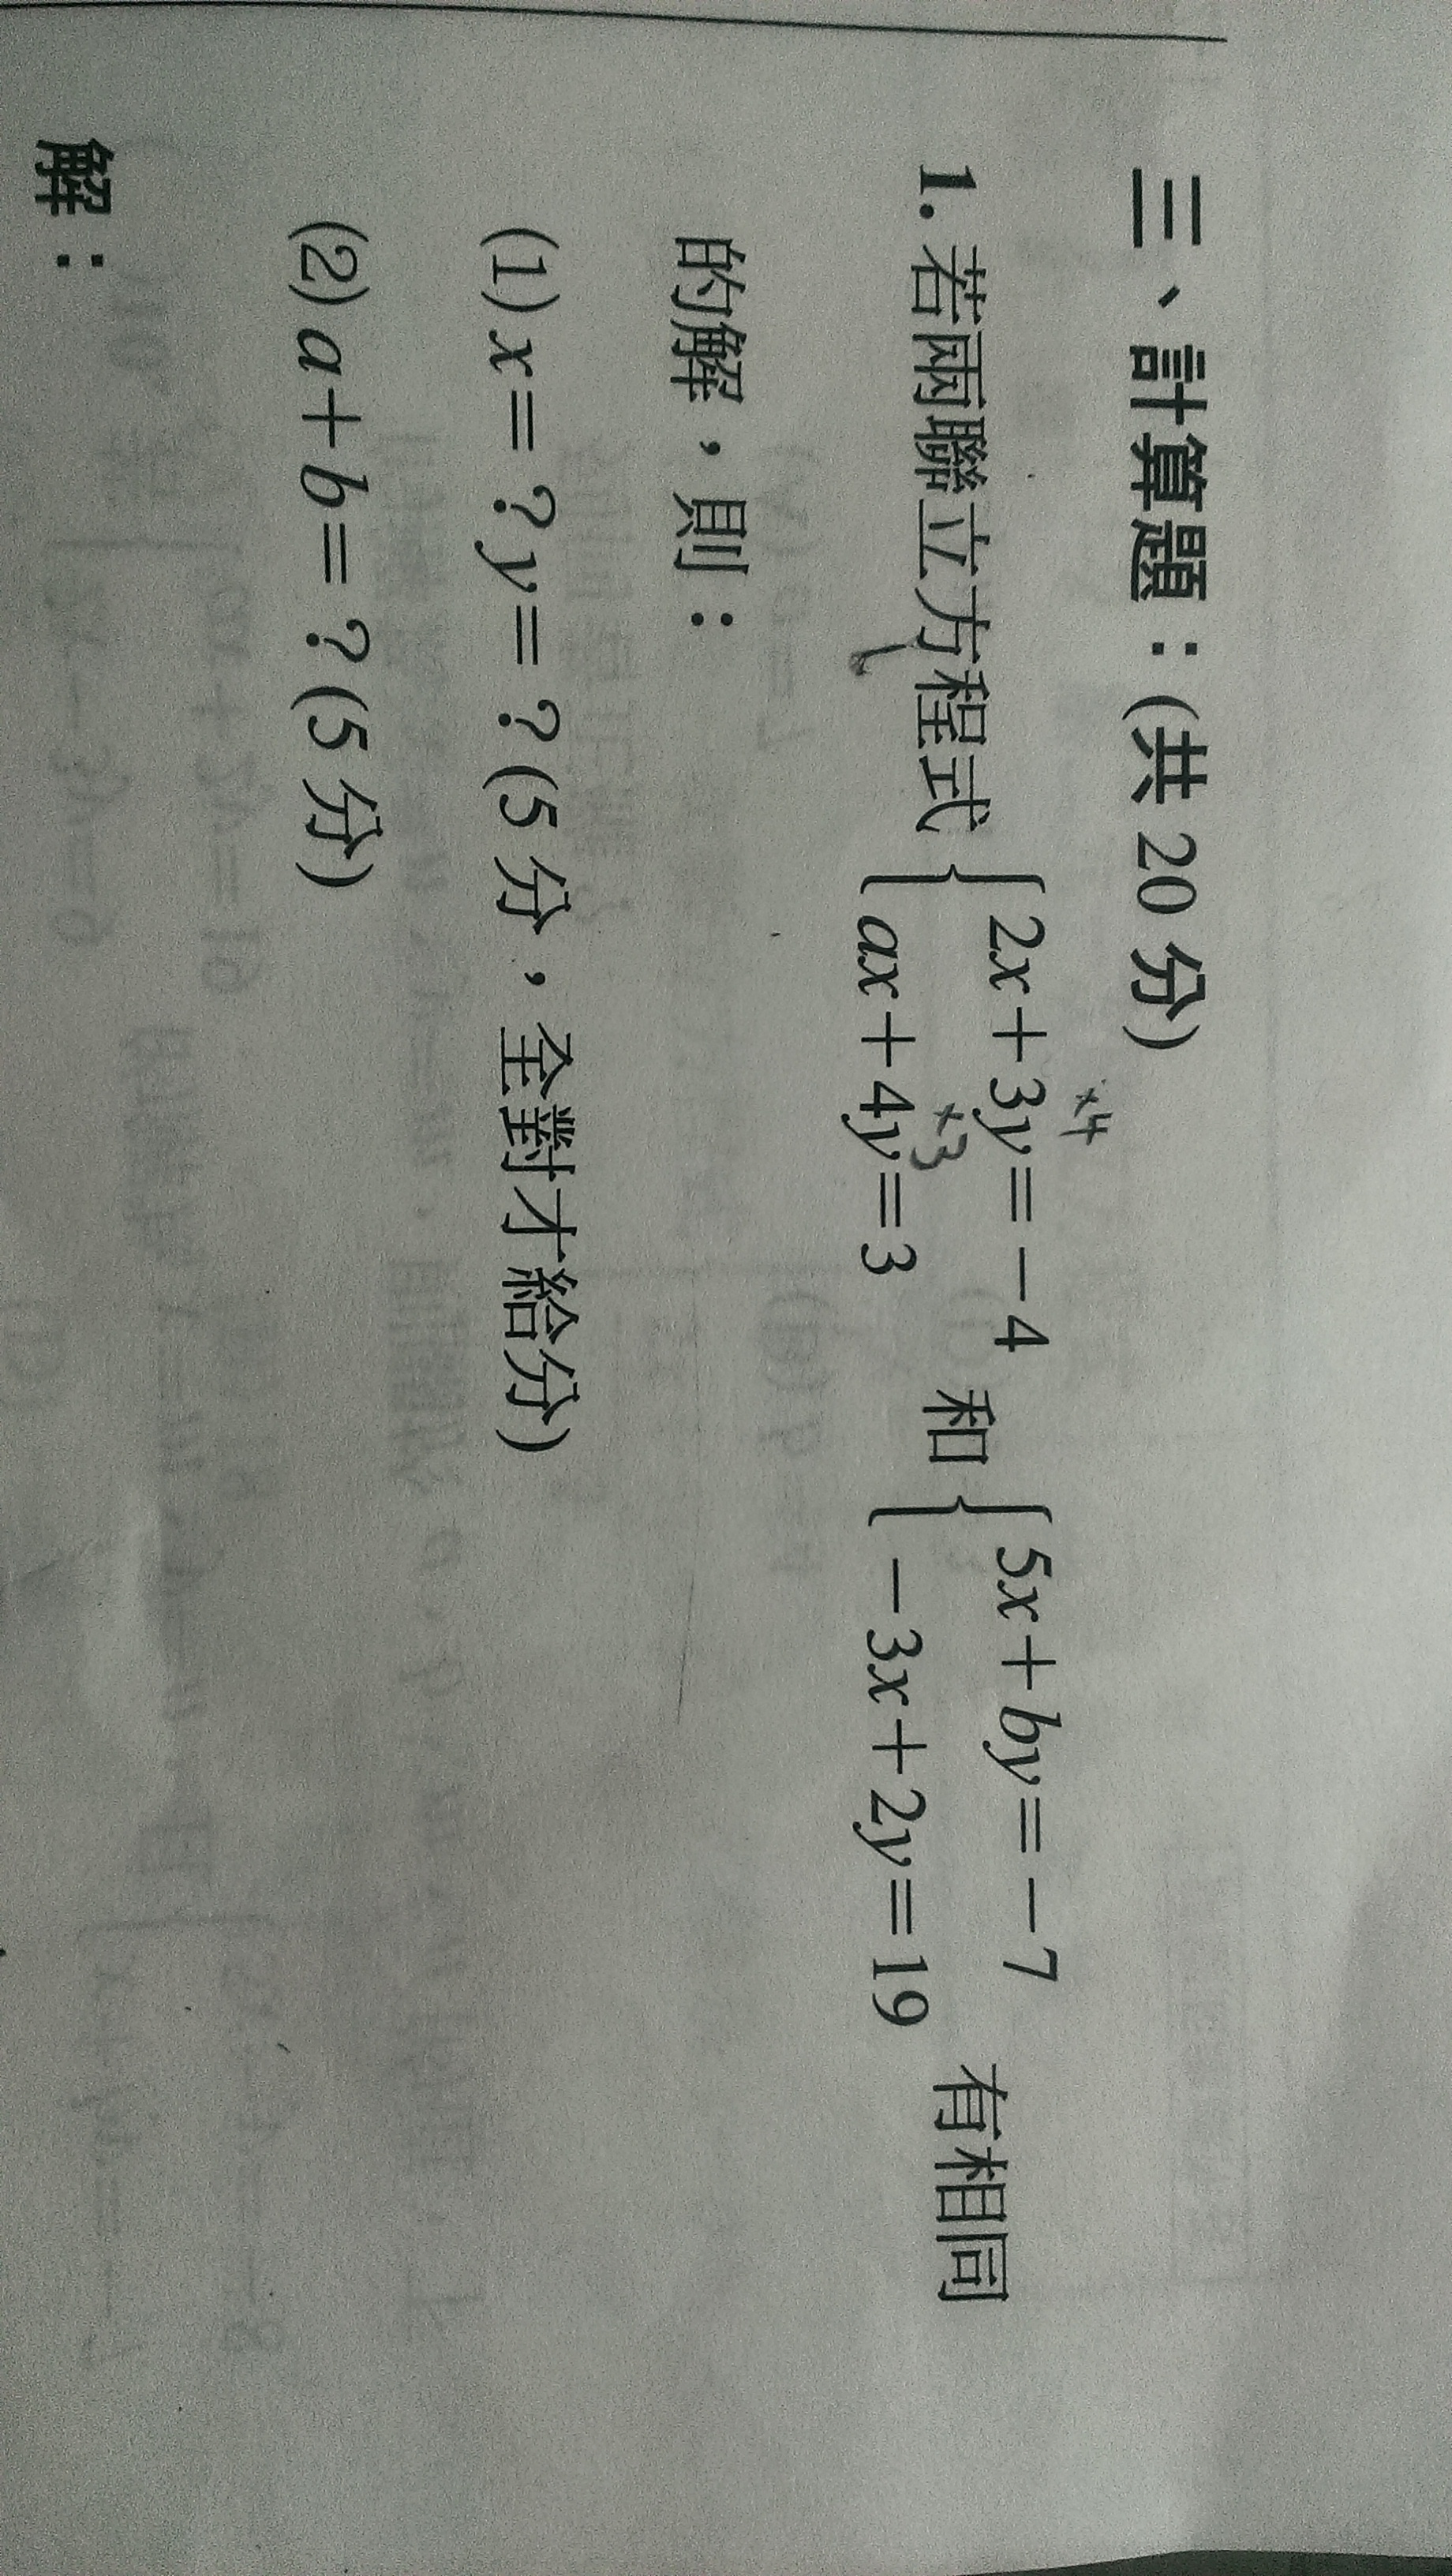 三、計算題：(共 20 分)
×4
1. 若兩聯立方程式 { 2x＋3y＝－4 和 { 5x＋by＝－7 有相同
×3
ax＋4y＝3 －3x＋2y＝19
的解，則：
(1) x＝？y＝？(5 分，全對才給分)
(2) a＋b＝？(5 分)
解：